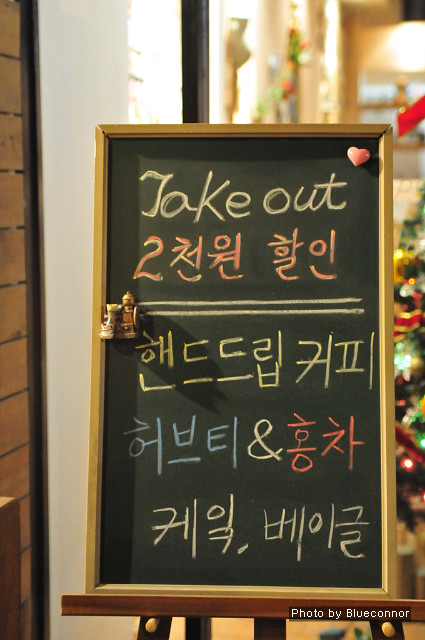 Take out
2천원 할인
핸드드립 커피
허브티 & 홍차
케잌, 베이글
Photo by Blueconnor